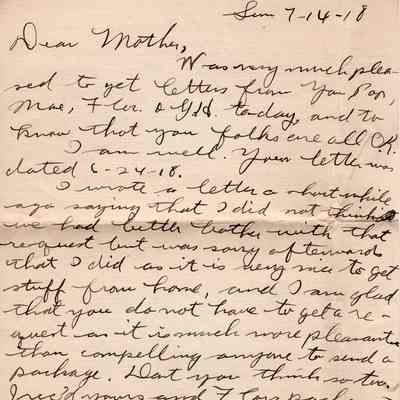 Sun 7-14-18
Dear Mother,
Was very much plea-
sed to get letters from You Pop,
Mae, Flor. & G.H. today, and to
know that you folks are all O.K.
I am well. Your letter was
dated 6-24-18.
I wrote a letter a short while
ago saying that I did not think
we had better bother with that
request but was sorry afterwards
that I did as it is very nice to get
stuff from home, and I am glad
that you do not have to get a re-
quest as it is much more pleasant
than compelling anyone to send a
package. Dont you think so too.
I rec'd yours and Flors